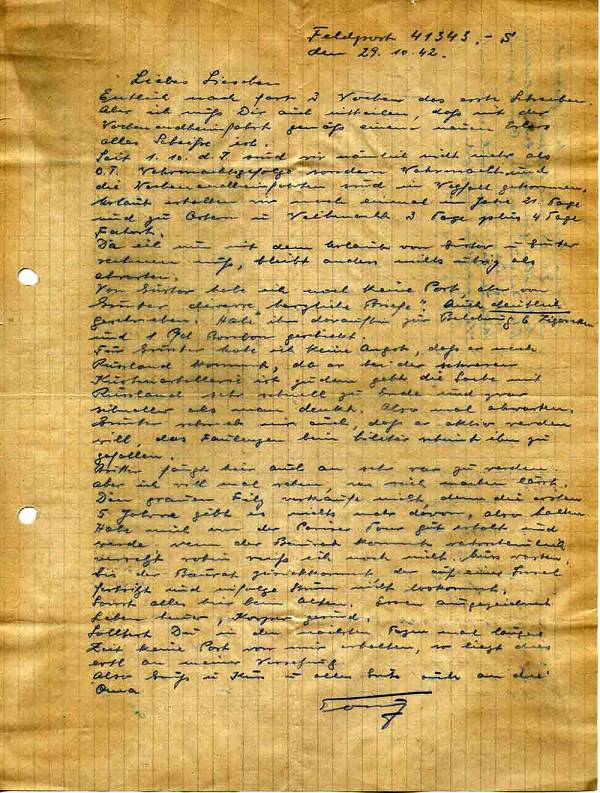 Feldpost 41343.-S
den 29.10.42.
Liebes Lieschen
Endlich nach fast 3 Wochen das erste Schreiben.
Aber ich muß Dir auch mitteilen, daß mit der
Wochenendheimfahrt gemäß einem neuen Erlass
alles Scheiße ist.
Seit 1.10. d. J. sind wir nämlich nicht mehr als
O.T. Wehrmachtsgefolge sondern Wehrmacht und
die Wochenendheimfahrten sind in Wegfall gekommen.
Urlaub erhalten wir noch einmal im Jahr 21 Tage
und zu Ostern u Weihnacht 3 Tage plus 4 Tage
Fahrt.
Da ich nun mit dem Urlaub von u Günter
rechnen muß, bleibt anders nichts übrig als
abwarten.
Von habe ich noch keine Post, aber von
Günter diverse "herzliche Briefe". Auch deutlich
geschrieben. Habe ihm daraufhin zur Belohnung 6 Zigaretten
und 1 Bonbon geschickt.
Für Günter habe ich keine Angst, daß er nach
Russland kommt, da er bei der schweren
Küstenartillerie ist zudem geht die Sache mit
Russland sehr schnell zu Ende und zwar
schneller als man denkt. Also mal abwarten.
Günter schrieb mir auch, daß er aktiv werden
will, das Faulenzen beim Militär scheint ihm zu
gefallen.
fängt hier auch an sehr rar zu werden.
Aber ich will mal sehen, was sich machen lässt.
Den grauen Filz verkaufe nicht denn die ersten
5 Jahre gibt es nichts mehr davon, also halten
Habe mich von der Pariser Tour gut erholt und
werde wenn der Baurat kommt wahrscheinlich
versetzt wohin weiß ich noch nicht. Muss warten
bis der Baurat zurückkommt der auf einer Insel
festsitzt und infolge Sturm nicht loskommt.
Sonst alles hier beim Alten. Essen ausgezeichnet
Leben teuer, Körper gesund.
Solltest Du in den nächsten Tagen mal länger
Zeit keine Post von mir erhalten, so liegt dies
erst an meiner Versetzung
Also Gruß u Kuss u alles Gute auch an die
Oma